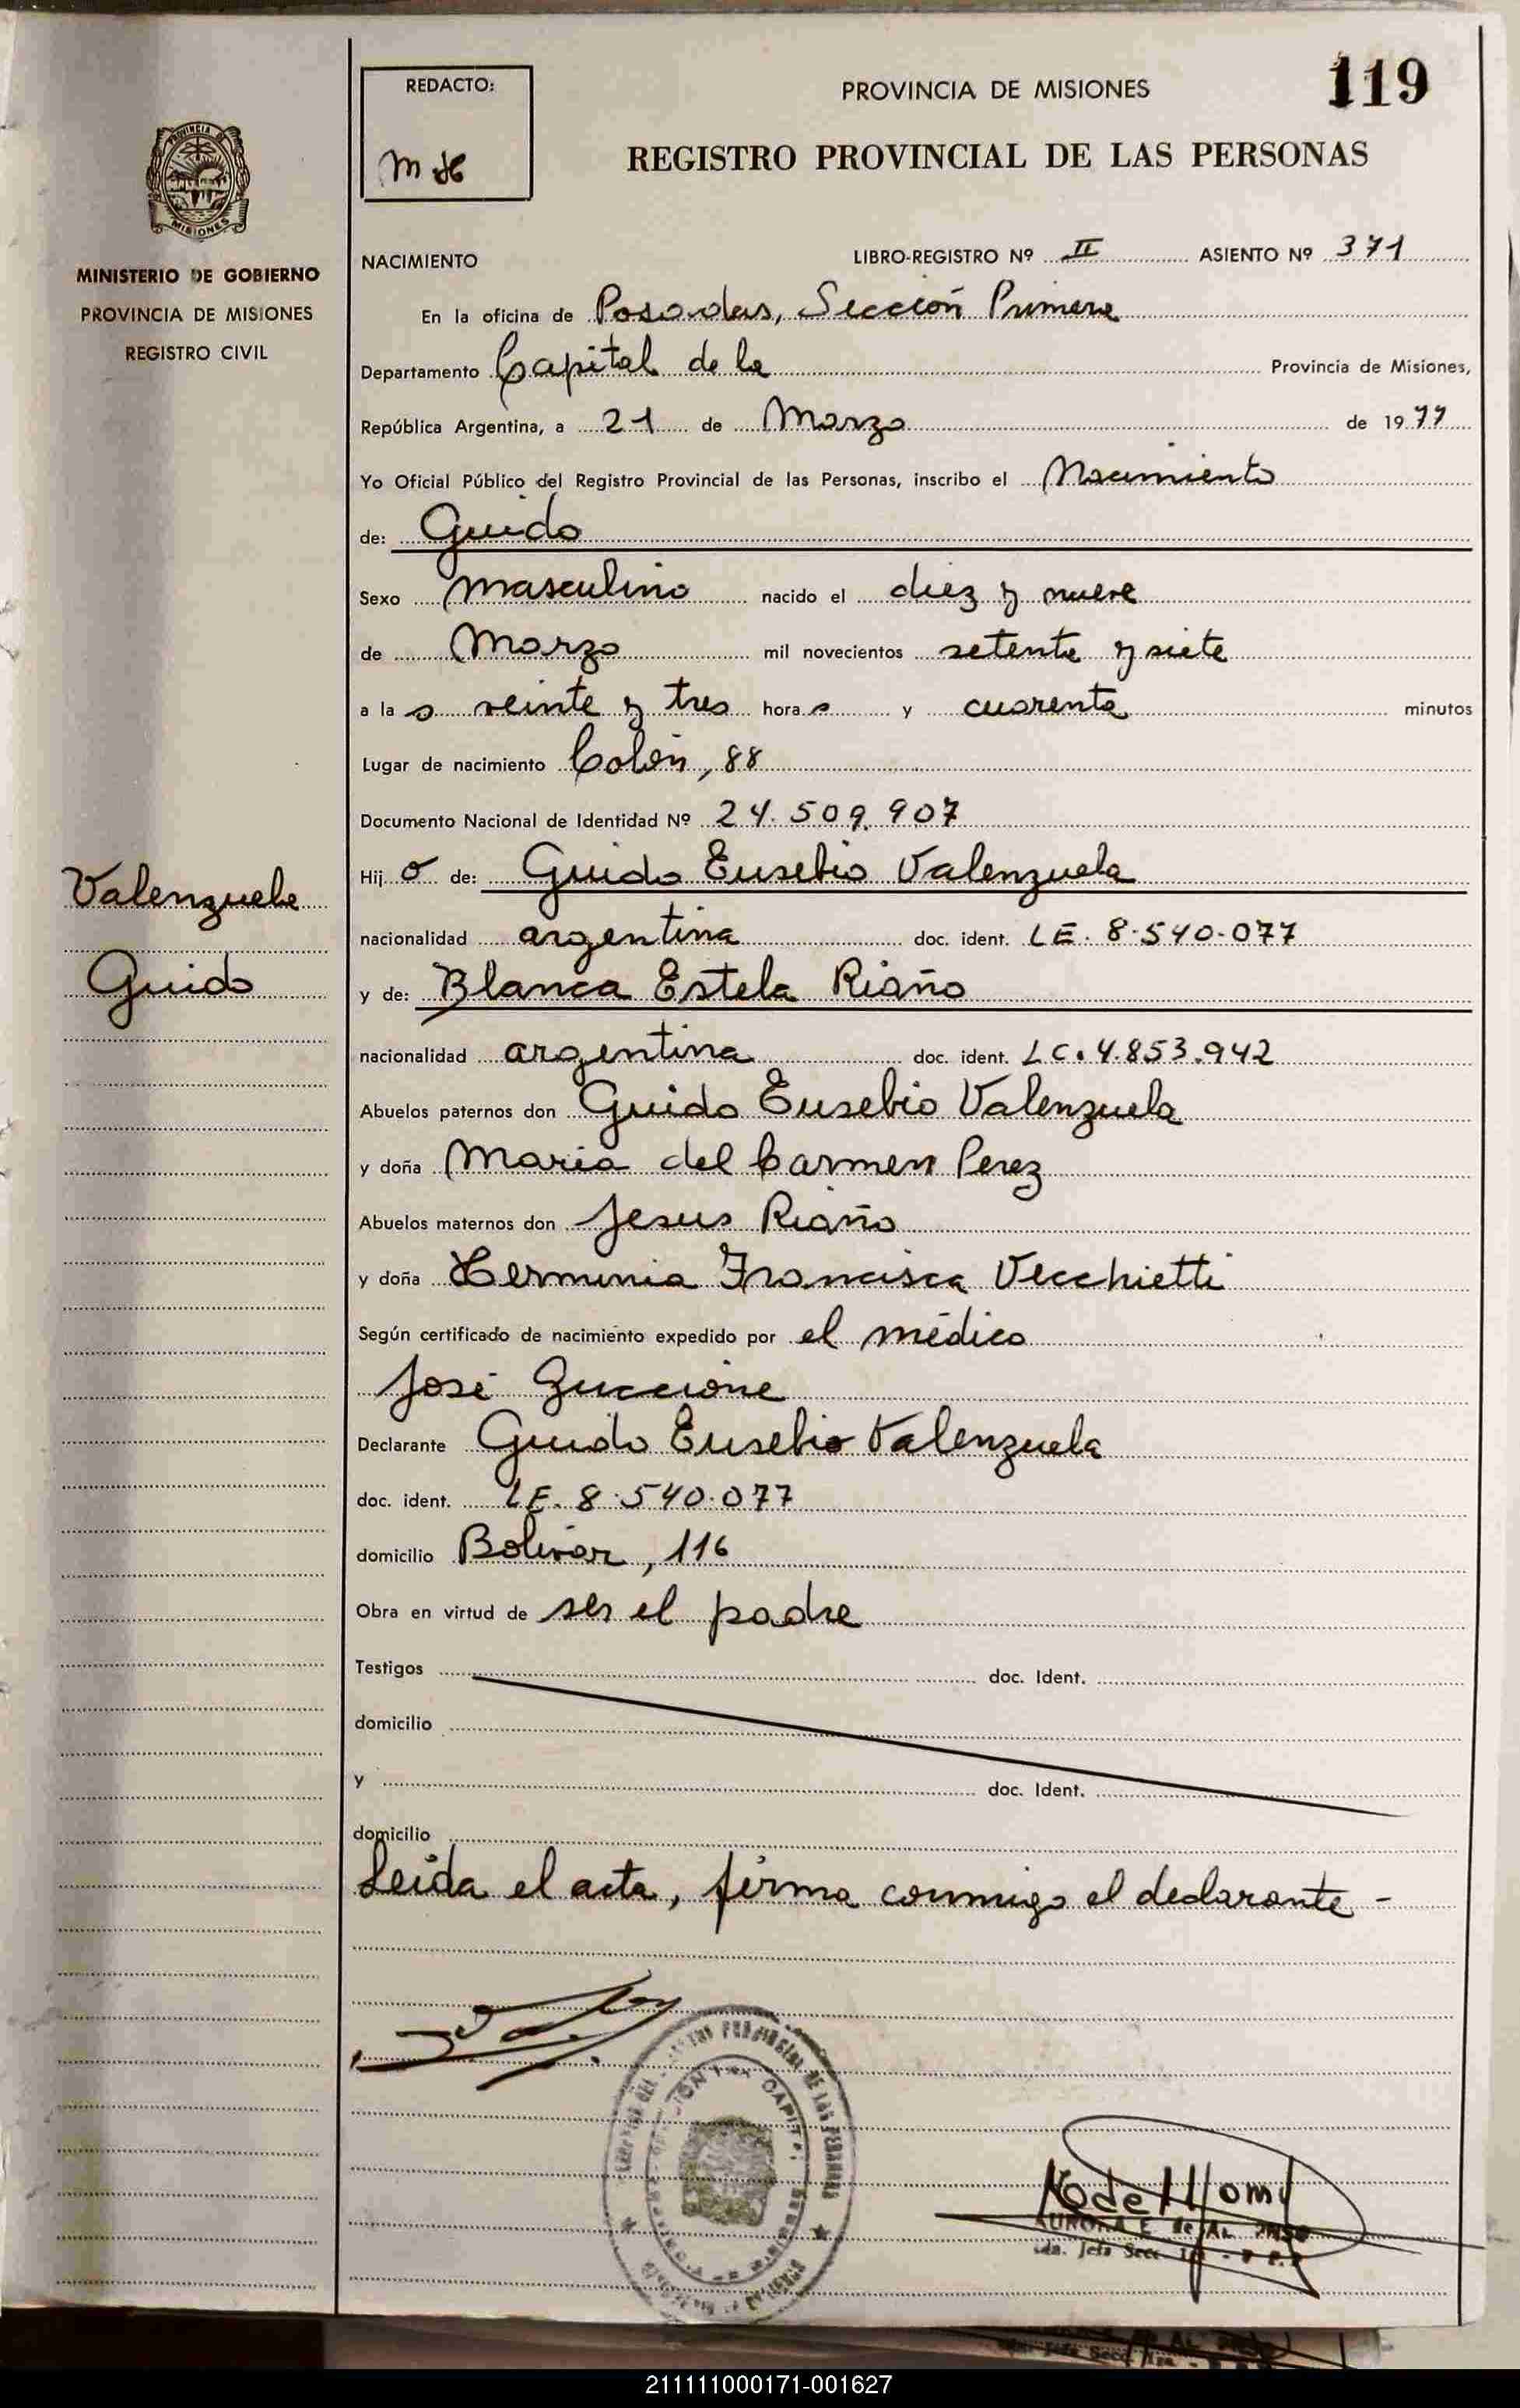 119
REDACTO:
PROVINCIA DE MISIONES
REGISTRO PROVINCIAL DE LAS PERSONAS
PROVINCIA DE
MISIONES
MINISTERIO DE GOBIERNO
PROVINCIA DE MISIONES
REGISTRO CIVIL
NACIMIENTO LIBRO-REGISTRO Nº II ASIENTO Nº 371
En la oficina de Posadas, Sección Primera
Departamento Capital de la Provincia de Misiones,
República Argentina, a 21 de Marzo de 1977
Yo Oficial Público del Registro Provincial de las Personas, inscribo el Nacimiento
de: Guido
Sexo masculino nacido el diez y nueve
de Marzo mil novecientos setenta y siete
a la s veinte y tres hora s y cuarenta minutos
Lugar de nacimiento Colón, 88
Documento Nacional de Identidad Nº 24.509.907
Hij o de: Guido Eusebio Valenzuela
Valenzuela
nacionalidad argentina doc. ident. LE. 8.540.077
Guido
y de: Blanca Estela Riaño
nacionalidad argentina doc. ident. LC. 4.853.942
Abuelos paternos don Guido Eusebio Valenzuela
y doña Maria del Carmen Perez
Abuelos maternos don Jesus Riaño
y doña Herminia Francisca Vecchietti
Según certificado de nacimiento expedido por el médico
José Guccione
Declarante Guido Eusebio Valenzuela
doc. ident. LE. 8.540.077
domicilio Bolivar, 116
Obra en virtud de ser el padre
Testigos doc. Ident.
domicilio
y doc. Ident.
domicilio
Leida el acta, firma conmigo el declarante -
211111000171-001627